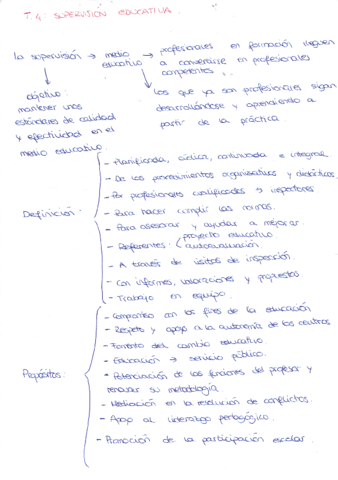 T.4: SUPERVISIÓN EDUCATIVA.
la supervisión → medio educativo → profesionales en formación lleguen
a convertirse en profesionales
competentes.
los que ya son profesionales sigan
desarrollándose y aprendiendo a
partir de la práctica.
objetivo:
mantener unos
estándares de calidad
y efectividad en el
medio educativo.
Definición:
- Planificada, cíclica, continuada e integral
- De los procedimientos organizativos y didácticos.
- Por profesionales cualificados → inspectores
- Para hacer cumplir las normas.
- Para asesorar y ayudar a mejorar.
- Referentes: proyecto educativo
autoevaluación.
- A través de visitas de inspección.
- Con informes, valoraciones y propuestas
- Trabajo en equipo.
Propósitos:
- Compromiso con los fines de la educación
- Respeto y apoyo a la autonomía de los centros
- Fomento del cambio educativo.
- Educación → servicio público.
- Potenciación de las funciones del profesor y
renovar su metodología
- Mediación en la resolución de conflictos.
- Apoyo al liderazgo pedagógico.
- Promoción de la participación escolar.